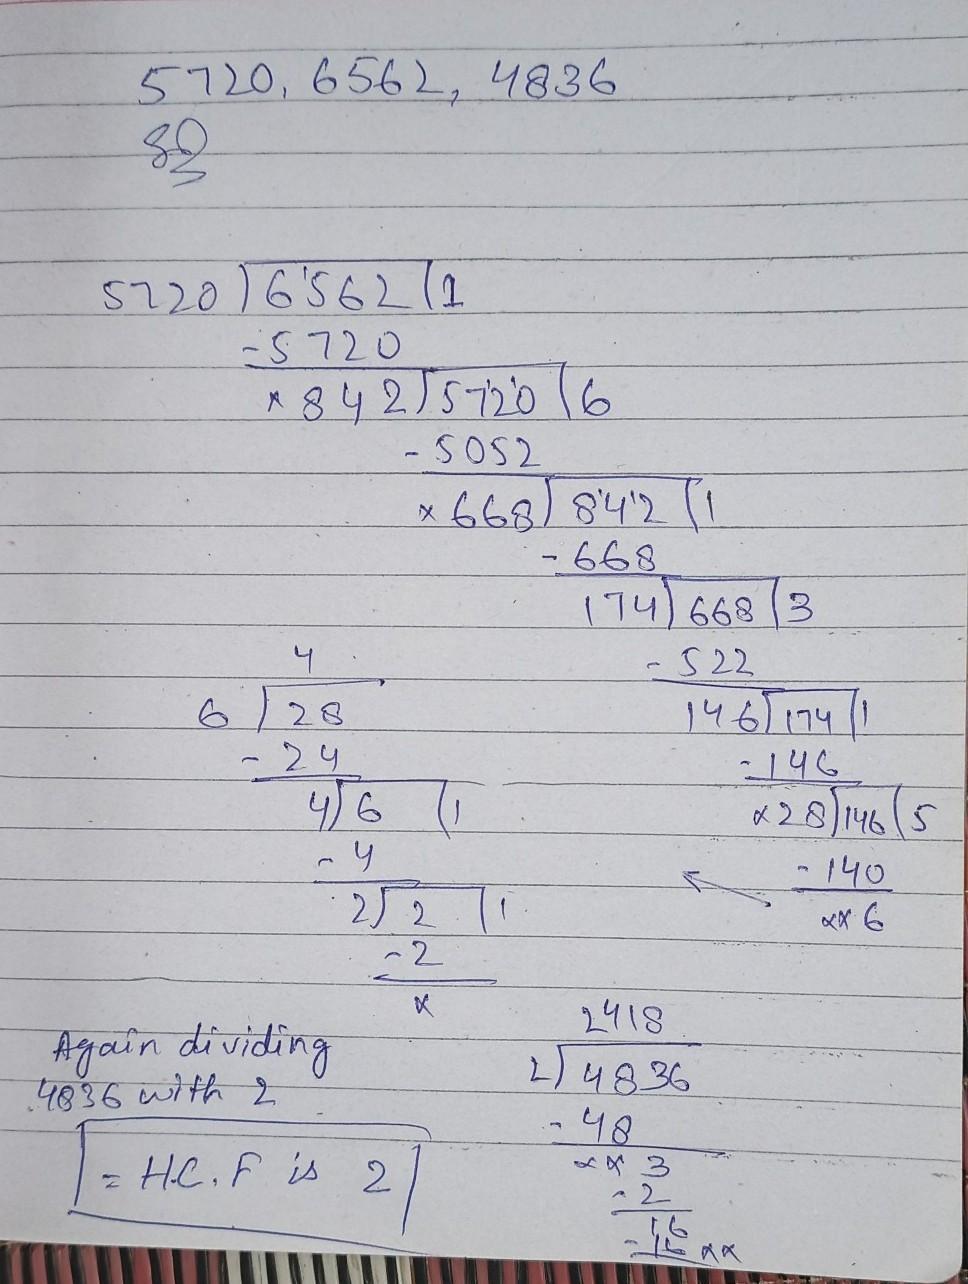 5720, 6562, 4836
5720)6562(1
-5720
x842)5720(6
-5052
x668)842(1
-668
174)668(3
-522
146)174(1
-146
x28)146(5
-140
xx6
4
6)28
-24
4)6(1
-4
2)2(1
-2
x
Again dividing
4836 with 2
= H.C.F is 2
2418
2)4836
-48
xx3
-2
16
-16xx